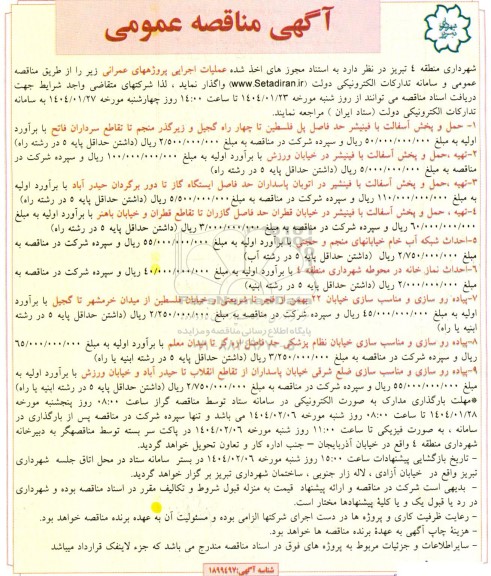 آگهی مناقصه عمومی
شهرداری منطقه ۴ تبریز در نظر دارد به استناد مجوز های اخذ شده عملیات اجرایی پروژههای عمرانی زیر را از طریق مناقصه
عمومی و سامانه تدارکات الکترونیکی دولت (www.Setadiran.ir) واگذار نماید ، لذا شرکتهای متقاضی واجد شرایط جهت
دریافت اسناد مناقصه می توانند از روز شنبه مورخه ۱۴۰۴/۰۱/۲۳ تا ساعت ۱۴:۰۰ روز چهارشنبه مورخه ۱۴۰۴/۰۱/۲۷ به سامانه
تدارکات الکترونیکی دولت (ستاد ایران ) مراجعه نمایند.
۱- حمل و پخش آسفالت با فینیشر حد فاصل پل فلسطین تا چهار راه گجیل و زیرگذر منجم تا تقاطع سرداران فاتح با برآورد
اولیه به مبلغ ۵۰/۰۰۰/۰۰۰/۰۰۰ ریال و سپرده شرکت در مناقصه به مبلغ ۲/۵۰۰/۰۰۰/۰۰۰ ریال (داشتن حداقل پایه ۵ در رشته راه)
۲-تهیه ،حمل و پخش آسفالت با فینیشر در خیابان ورزش با برآورد اولیه به مبلغ ۱۰۰/۰۰۰/۰۰۰/۰۰۰ ریال و سپرده شرکت در
مناقصه به مبلغ ۵/۰۰۰/۰۰۰/۰۰۰ ریال (داشتن حداقل پایه ۵ در رشته راه)
۳-تهیه ،حمل و پخش آسفالت با فینشیر در اتوبان پاسداران حد فاصل ایستگاه گاز تا دور برگردان حیدر آباد با برآورد اولیه
به مبلغ ۱۱۰/۰۰۰/۰۰۰/۰۰۰ ریال و سپرده شرکت در مناقصه به مبلغ ۵/۵۰۰/۰۰۰/۰۰۰ ریال (داشتن حداقل پایه ۵ در رشته راه)
۴-تهیه ،حمل و پخش آسفالت با فینیشر در خیابان قطران حد فاصل گازران تا تقاطع قطران و خیابان باهنر با برآورد اولیه به مبلغ
۶۰/۰۰۰/۰۰۰/۰۰۰ ریال و سپرده شرکت در مناقصه به مبلغ ۳/۰۰۰/۰۰۰/۰۰۰ ریال (داشتن حداقل پایه ۵ در رشته راه)
۵-احداث شبکه آب خام خیابانهای منجم و حجتی با برآورد اولیه به مبلغ ۵۵/۰۰۰/۰۰۰/۰۰۰ ریال و سپرده شرکت در مناقصه به
مبلغ ۲/۷۵۰/۰۰۰/۰۰۰ ریال (داشتن حداقل پایه ۵ در رشته آب)
۶-احداث نماز خانه در محوطه شهرداری منطقه ۴ با برآورد اولیه به مبلغ ۴۰/۰۰۰/۰۰۰/۰۰۰ ریال و سپرده شرکت در مناقصه به
مبلغ ۲/۰۰۰/۰۰۰/۰۰۰ ریال (داشتن حداقل پایه ۵ در رشته ابنیه)
۷-پیاده رو سازی و مناسب سازی خیابان ۲۲ بهمن از قطران تا شریعتی و خیابان فلسطین از میدان خرمشهر تا گجیل با برآورد
اولیه به مبلغ ۴۵/۰۰۰/۰۰۰/۰۰۰ ریال و سپرده شرکت در مناقصه به مبلغ ۲/۲۵۰/۰۰۰/۰۰۰ ریال (داشتن حداقل پایه ۵ در رشته
ابنیه یا راه)
۸-پیاده رو سازی و مناسب سازی خیابان نظام پزشکی حد فاصل از پرگر تا میدان معلم با برآورد اولیه به مبلغ ۶۵/۰۰۰/۰۰۰/۰۰۰
ریال و سپرده شرکت در مناقصه به مبلغ ۳/۲۵۰/۰۰۰/۰۰۰ ریال (داشتن حداقل پایه ۵ در رشته ابنیه یا راه)
۹-پیاده رو سازی و مناسب سازی ضلع شرقی خیابان پاسداران از تقاطع انقلاب تا حیدر آباد و خیابان ورزش با برآورد اولیه به
مبلغ ۵۵/۰۰۰/۰۰۰/۰۰۰ ریال و سپرده شرکت در مناقصه به مبلغ ۲/۷۵۰/۰۰۰/۰۰۰ ریال (داشتن حداقل پایه ۵ در رشته ابنیه یا راه)
*مهلت بارگذاری مدارک به صورت الکترونیکی در سامانه ستاد توسط مناقصه گراز ساعت ۰۸:۰۰ روز پنجشنبه مورخه
۱۴۰۴/۰۱/۲۸ تا ساعت ۰۸:۰۰ روز شنبه مورخه ۱۴۰۴/۰۲/۰۶ می باشد و تنها سپرده شرکت در مناقصه پس از بارگذاری در
سامانه ، به صورت فیزیکی تا ساعت ۱۱:۰۰ روز شنبه مورخه ۱۴۰۴/۰۲/۰۶ در پاکت سر بسته توسط مناقصهگر به دبیرخانه
شهرداری منطقه ۴ واقع در خیابان آذربایجان – جنب اداره کار و تعاون تحویل خواهد گردید.
- تاریخ بازگشایی پیشنهادات ساعت ۱۵:۰۰ روز شنبه مورخه ۱۴۰۴/۰۲/۰۶ در بستر سامانه ستاد در محل اتاق جلسه شهرداری
تبریز واقع در خیابان آزادی ، لاله زار جنوبی ، ساختمان شهرداری تبریز بر گزار خواهد گردید.
- بدیهی است شرکت در مناقصه و ارائه پیشنهاد قیمت به منزله قبول شروط و تکالیف مقرر در اسناد مناقصه بوده و شهرداری
در رد یا قبول یک و یا کلیهٔ پیشنهادها مختار است.
- رعایت ظرفیت کاری و پروژه ها در دست اجرای شرکتها الزامی بوده و مسئولیت آن به عهده برنده مناقصه خواهد بود.
- هزینهٔ چاپ آگهی به عهدهٔ برنده مناقصه ها خواهد بود.
- سایراطلاعات و جزئیات مربوط به پروژه های فوق در اسناد مناقصه مندرج می باشد که جزء لاینفک قرارداد میباشد
شناسه آگهی:۱۸۹۹۴۹۷